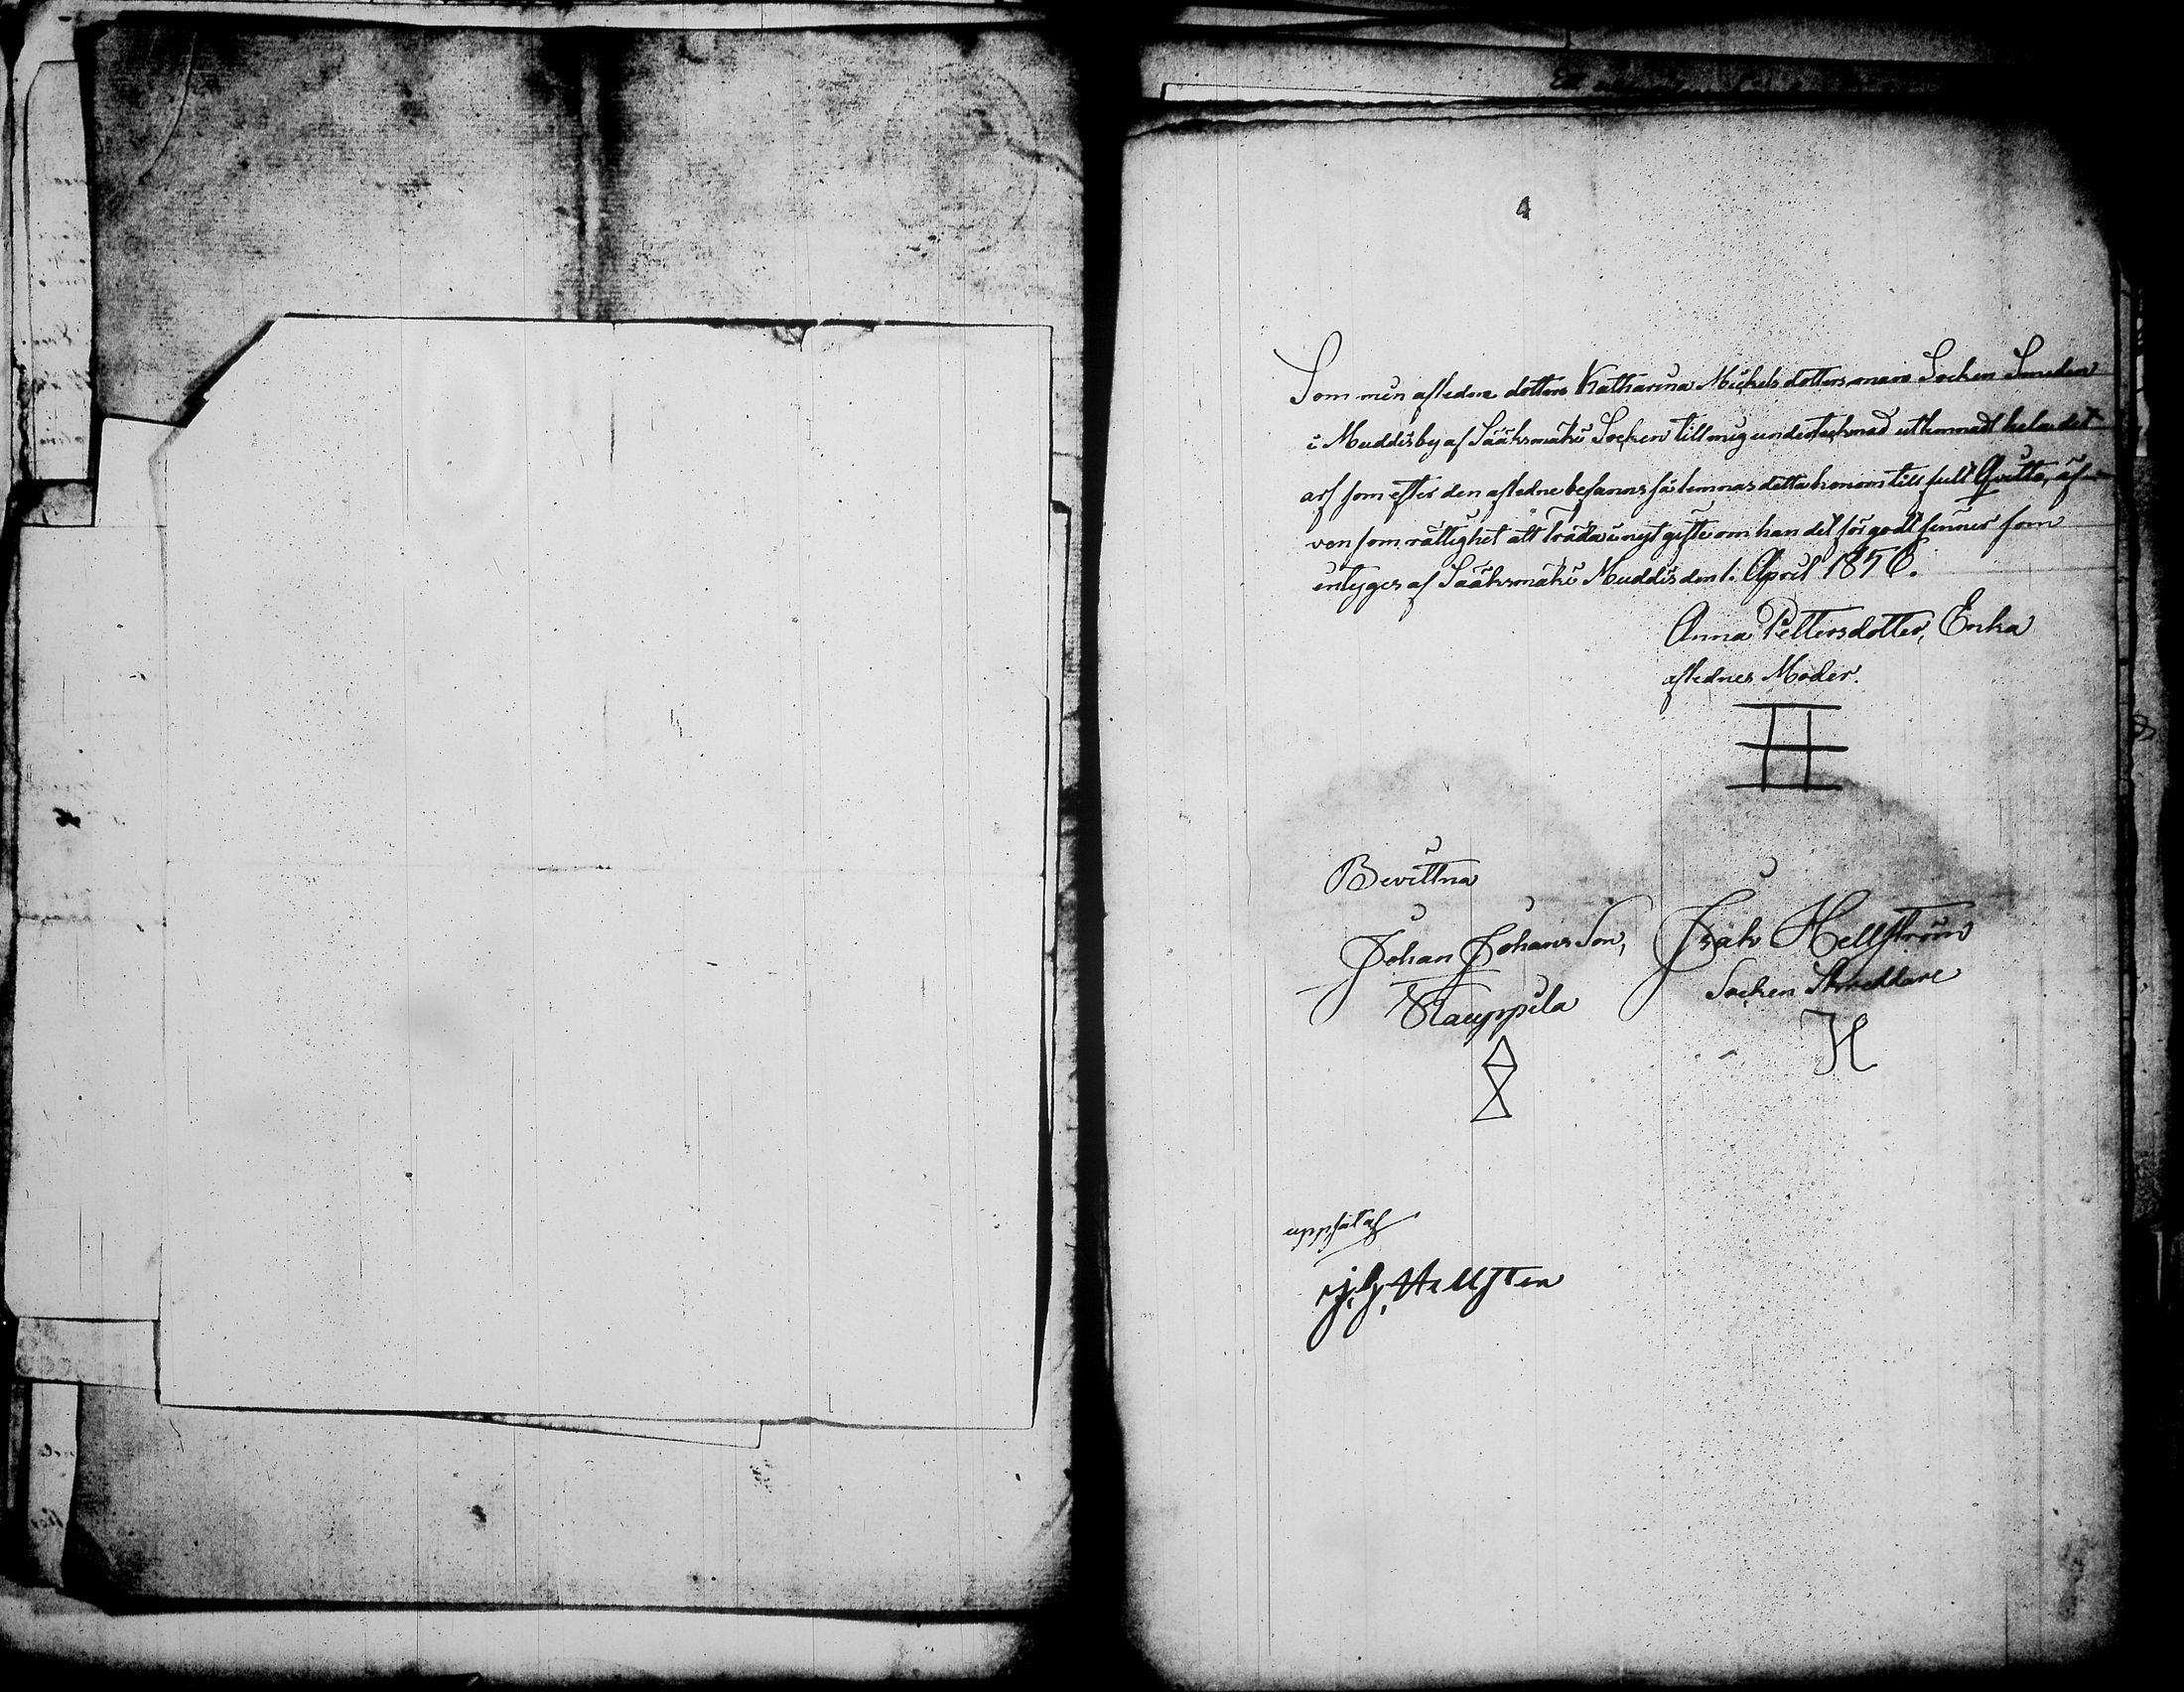 4
Som min aflidne dotters Katharina Mickelsdotters man Socken Smeden
i Muddis by af Sääksmäki Socken till mig undertecknad utlemnadt hela det
arf som efter den aflidne befanns så lemnas detta honom till fult Qvitto, äf-
ven som rättighet att Träda i nyt gifte om han det för godt finner som
intyges af Sääksmäki Muddis den 1. April 1856.
Anna Pettersdotter, Enka
aflidnes Moder.
Bevittna
Johan Johans Son, Isak Hellström
Kauppila Socken Skreddare
H
uppsat af
Hellsten